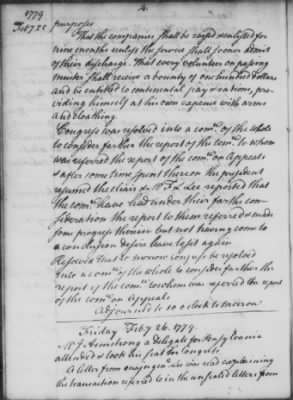 4.
1779
Feb 25
purposes
That the companies shall be raised & enlisted for
nine months unless the service shall sooner admit
of their discharge. That every volunteer on passing
muster shall receive a bounty of one hundred dollars
and be entitled to continental pay & rations, pro-
viding himself at his own expence with arms
and cloathing
Congress was resolved into a comee of the whole
to consider farther the report of the comee to whom
was referred the report of the comee on Appeals
& after some time spent thereon the president
resumed the chair & Mr F L Lee reported that
the comee have had under their farther con-
sideration the report to them referred & made
some progress therein but not having come to
a conclusion desire leave to sit again
Resolved That to morrow congress be resolved
into a comee of the whole to consider farther the
report of the comee to whom was referred the report
of the comee on Appeals
Adjourned to 10 o clock to morrow
Friday Feby 26. 1779.
Mr J Armstrong a delegate for Pensylvania
attended & took his seat in Congress
A letter from was read explaining
the transaction referred to in the unsealed letters from